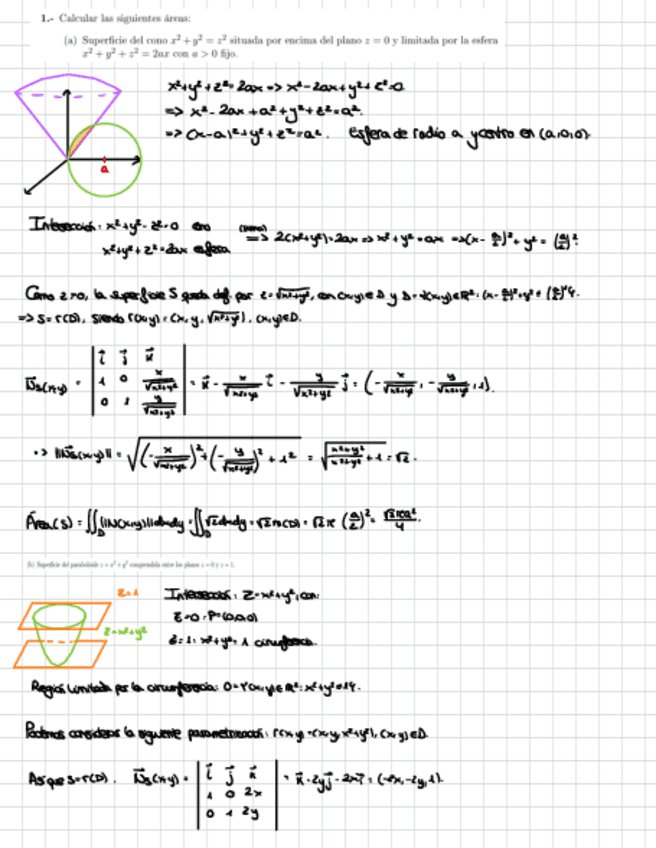 1.- Calcular las siguientes áreas:
(a) Superficie del cono x² + y² = z² situada por encima del plano z = 0 y limitada por la esfera
x² + y² + z² = 2ax con a > 0 fijo.
x²+y²+z²=2ax => x²-2ax+y²+z²=0
=> x²-2ax+a²+y²+z²=a².
=> (x-a)²+y²+z²=a². Esfera de radio a y centro en (a,0,0).
a
Intersección: x²+y²-z²=0 cono
x²+y²+z²=2ax esfera
(sumo) => 2(x²+y²)=2ax => x²+y²=ax => (x-a/2)²+y²=(a/2)².
Como z>0, la superficie S queda def. por z=√x²+y², con (x,y)∈D y D={(x,y)∈R²: (x-a/2)²+y²≤(a/2)²}.
=> S=r(D), siendo r(x,y)=(x,y,√x²+y²), (x,y)∈D.
Ns(x,y) = | i j k ; 1 0 x/√x²+y² ; 0 1 y/√x²+y² | = k - x/√x²+y² i - y/√x²+y² j = (-x/√x²+y², -y/√x²+y², 1).
=> ||Ns(x,y)|| = √((-x/√x²+y²)²+(-y/√x²+y²)²+1²) = √(x²+y²/x²+y²+1) = √2.
Área(S) = ∬_D ||N(x,y)||dxdy = ∬_D √2dxdy = √2m(D) = √2π(a/2)² = √2πa²/4.
(b) Superficie del paraboloide z = x² + y² comprendida entre los planos z = 0 y z = 1.
z=1
z=x²+y²
Intersección: z=x²+y², con:
z=0: P=(0,0,0)
z=1: x²+y²=1 circunferencia.
Región limitada por la circunferencia: D={(x,y)∈R²: x²+y²≤1}.
Podemos considerar la siguiente parametrización: r(x,y)=(x,y,x²+y²), (x,y)∈D.
Así que S=r(D). Ns(x,y) = | i j k ; 1 0 2x ; 0 1 2y | = k-2yj-2xi = (-2x,-2y,1).